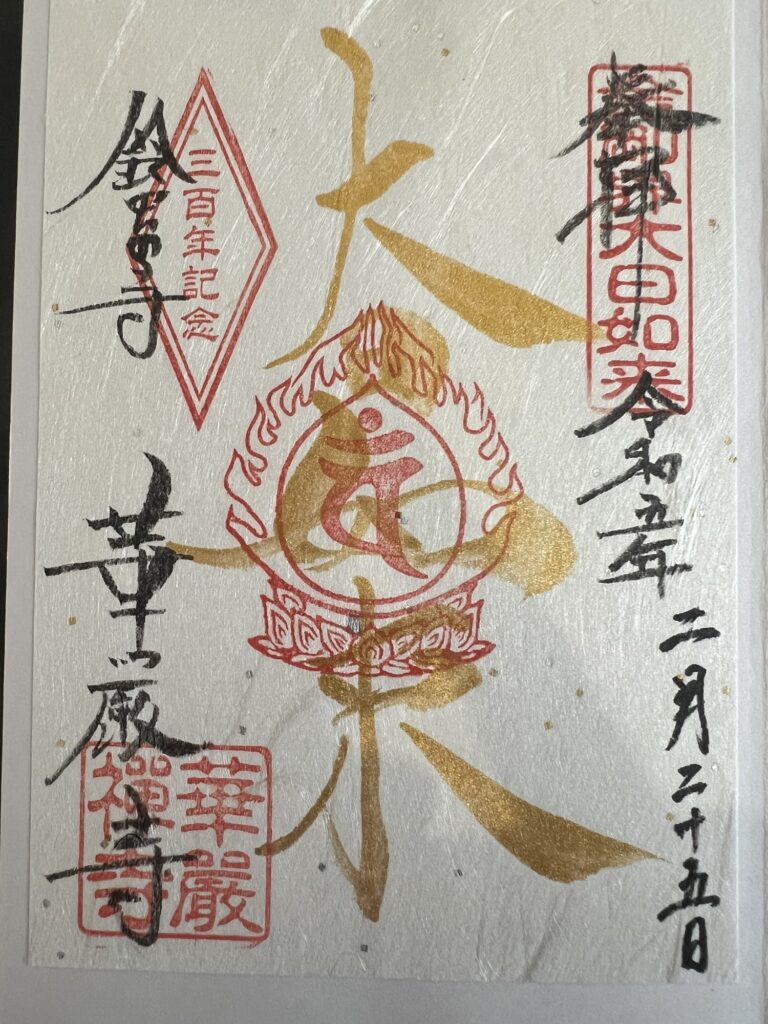 奉拝
大日如来
令和五年
二月二十五日
大日如来
三百年記念
鈴虫の寺
華厳寺
華嚴
禪寺